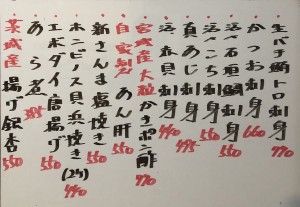 生バチ鮪トロ刺身 770
かつお刺 660
石垣鯛刺身 550
刺身 550
真あじ刺身 495
貝刺身 440
宮城産大粒かきポン酢 770
自家製 あん肝 550
新さんま塩焼き 550
ホンビノス貝浜焼き(2ケ) 440
エボダイ唐揚げ 550
あら煮 385
茨城産 揚げ銀杏 550